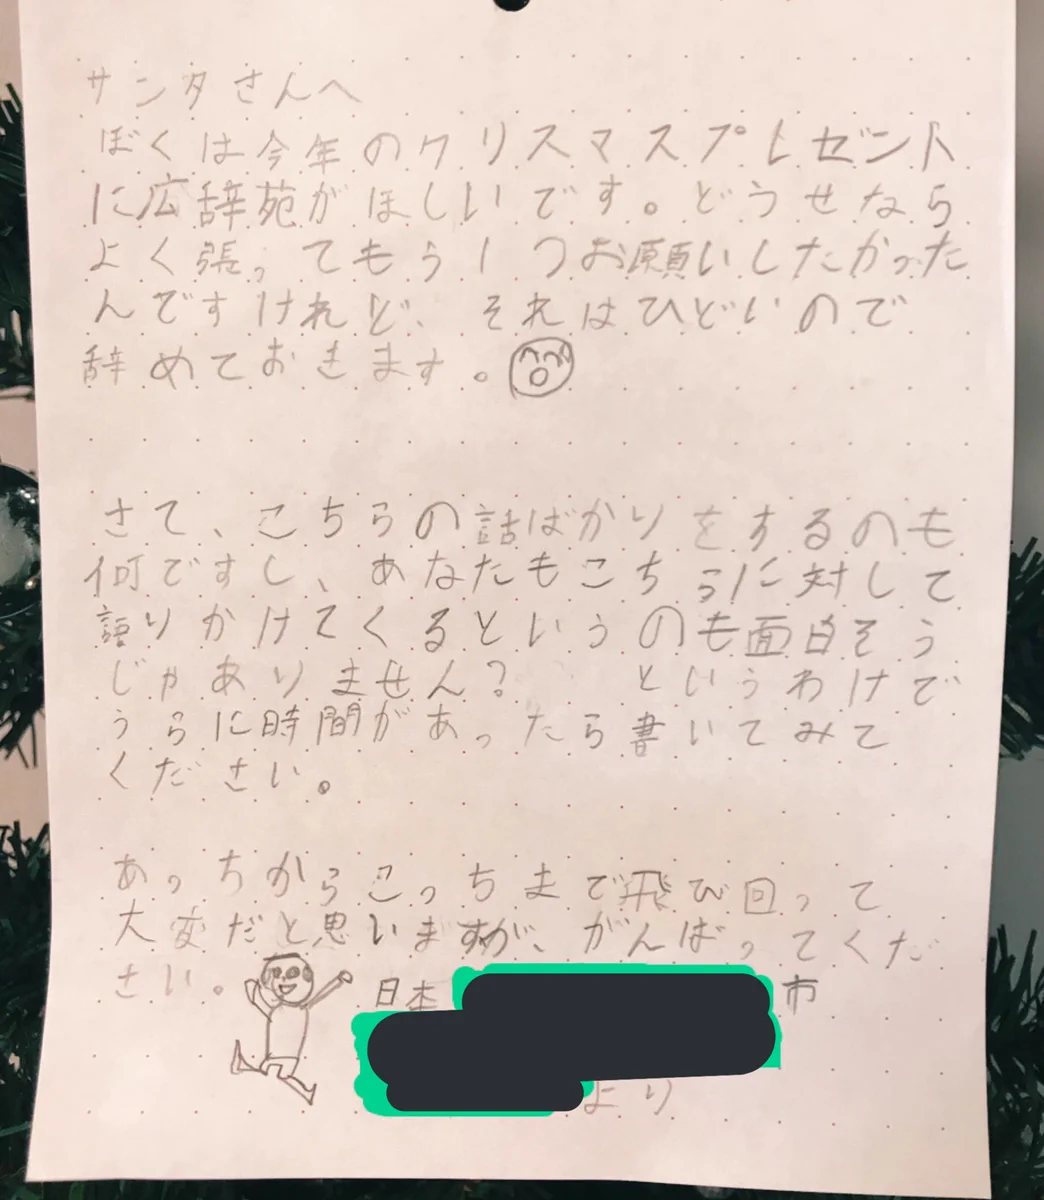 サンタさんへ
ぼくは今年のクリスマスプレゼント
に広辞苑がほしいです。どうせなら
よく張ってもう1つお願いしたかった
んですけれど、それはひどいので
辞めておきます。
さて、こちらの話ばかりをするのも
何ですし、あなたもこちらに対して
語りかけてくるというのも面白そう
じゃありません? というわけで
うらに時間があったら書いてみて
ください。
あっちからこっちまで飛び回って
大変だと思いますが、がんばってくだ
さい。
日本 市
より